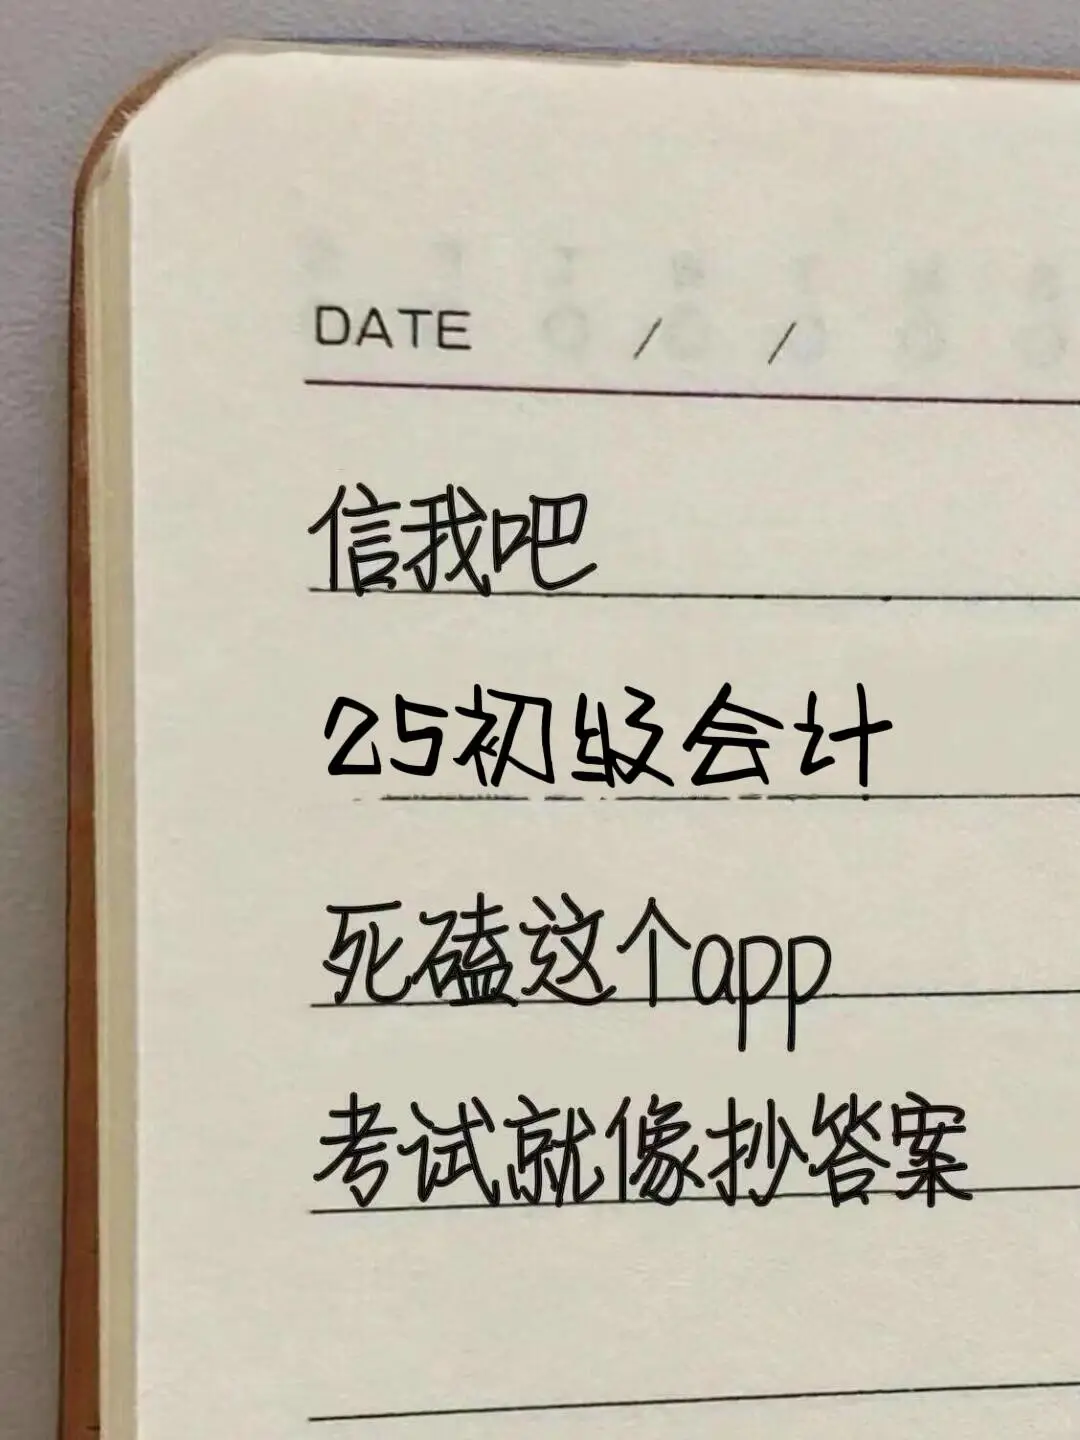 DATE / /
信我吧
25初级会计
死磕这个app
考试就像抄答案